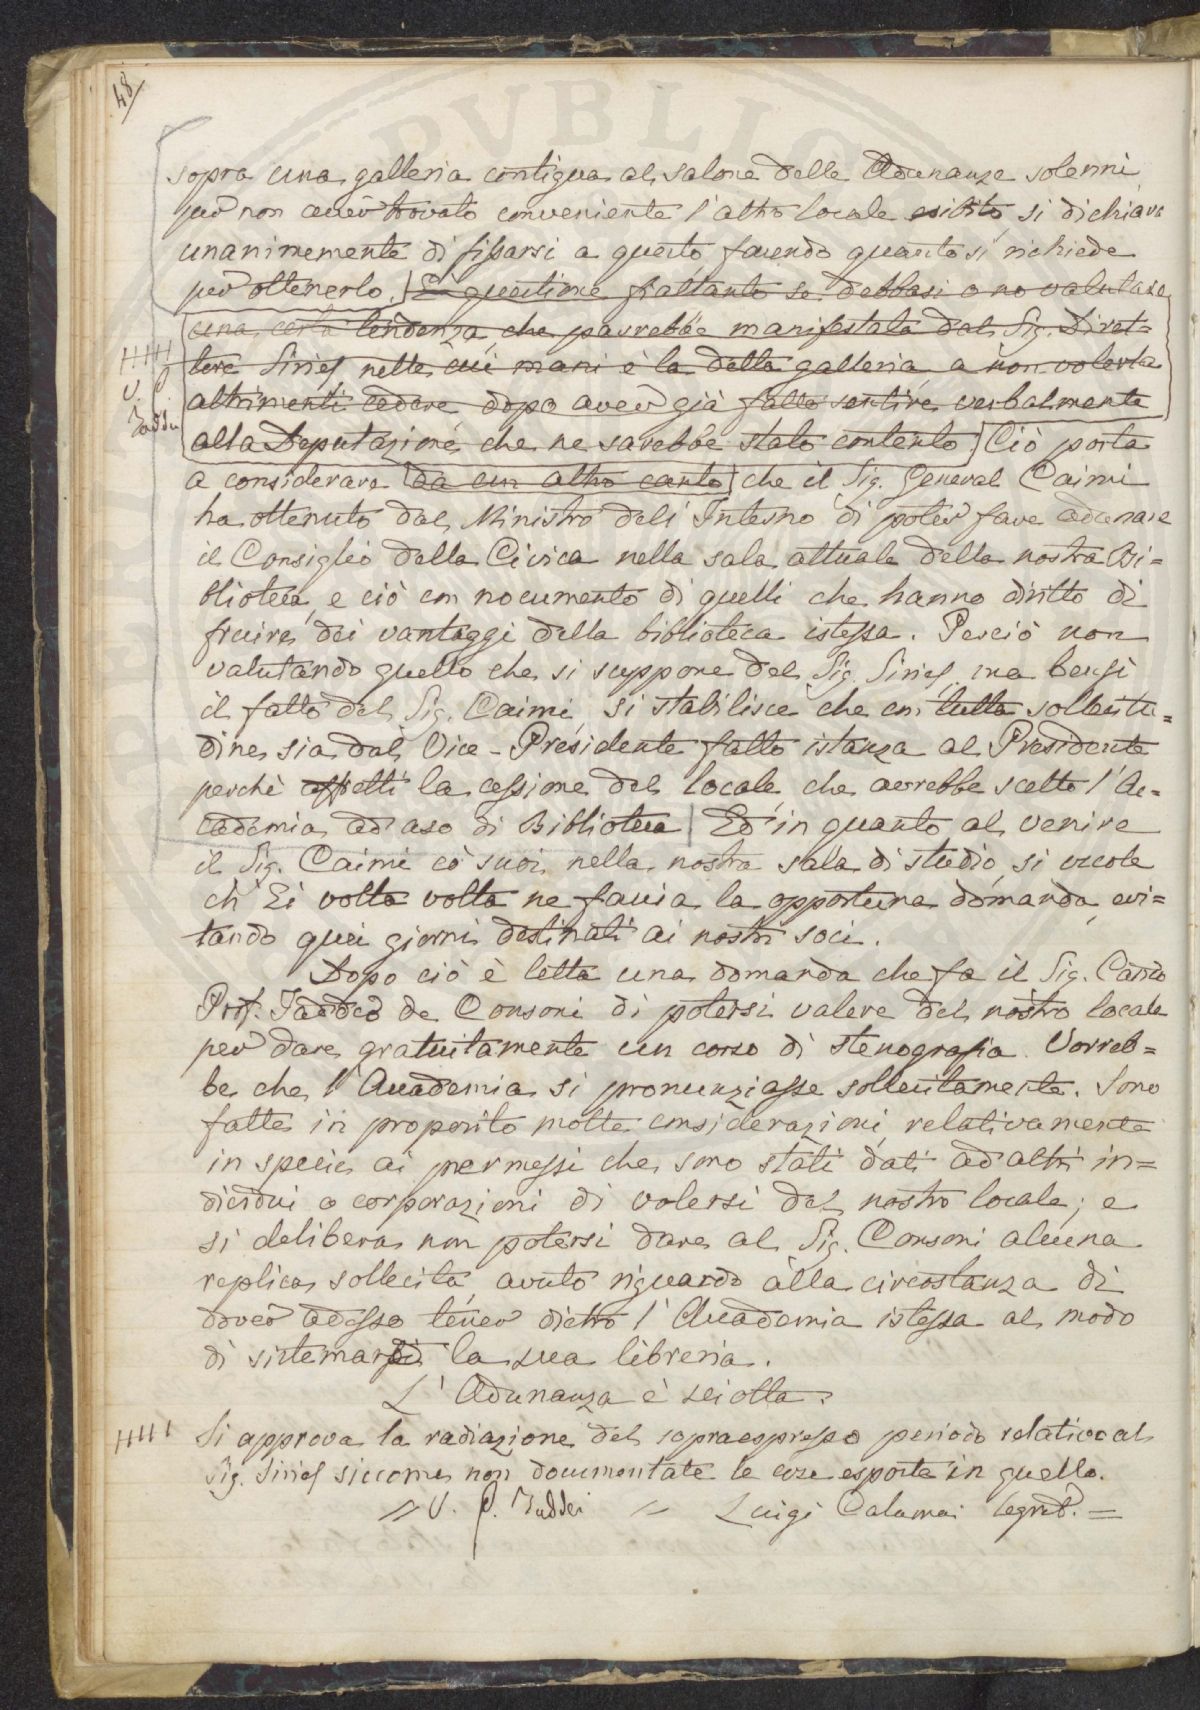 48
PVBLIC
sopra una galleria contigua al salone delle Adunanze solenni,
per non aver trovato conveniente l'altro locale esibito, si dichiara
unanimemente di fissarsi a questo facendo quanto si richiede
per ottenerlo. È questione frattanto se debbasi o no valutare
una certa tendenza, che pavrebbe manifestata dal Sig. Diret=
tore Siries nelle cui mani è la detta galleria, a non volerla
altrimenti cedere dopo aver già fatto sentire verbalmente
alla Deputazione che ne sarebbe stato contento. Ciò porta
V. P.
Taddei
a considerare da un altro canto che il Sig. General Caimi
ha ottenuto dal Ministro dell'Interno di poter fare adunare
il Consiglio della Civica nella sala attuale della nostra Bi=
blioteca, e ciò con nocumento di quelli che hanno diritto di
fruire dei vantaggi della biblioteca istessa. Perciò non
valutando quello che si suppone del Sig. Siries, ma bensì
il fatto del Sig. Caimi, si stabilisce che con tutta sollecitu=
dine sia dal Vice-Presidente fatto istanza al Presidente
perchè affretti la cessione del locale che avrebbe scelto l'Ac=
cademia ad uso di Biblioteca. Ed in quanto al venire
il Sig. Caimi co' suoi nella nostra sala di studio, si vuole
ch'Ei volta volta ne faccia la opportuna domanda, evi=
tando quei giorni destinati ai nostri soci.
Dopo ciò è letta una domanda che fa il Sig. Carlo
Prof. Taddeo de Consoni di potersi valere del nostro locale
per dare gratuitamente un corso di stenografia. Vorreb=
be che l'Accademia si pronunziasse sollecitamente. Sono
fatte in proposito molte considerazioni, relativamente
in specie ai permessi che sono stati dati ad altri in=
dividui o corporazioni di valersi del nostro locale; e
si delibera non potersi dare al Sig. Consoni alcuna
replica sollecita, avuto riguardo alla circostanza di
dover adesso tener dietro l'Accademia istessa al modo
di sistemare la sua libreria.
L'Adunanza è sciolta.
Si approva la radiazione del sopraespresso periodo relativo al
Sig. Siries siccome non documentate le cose esposte in quello.
V. P. Taddei = Luigi Calamai Segret. =